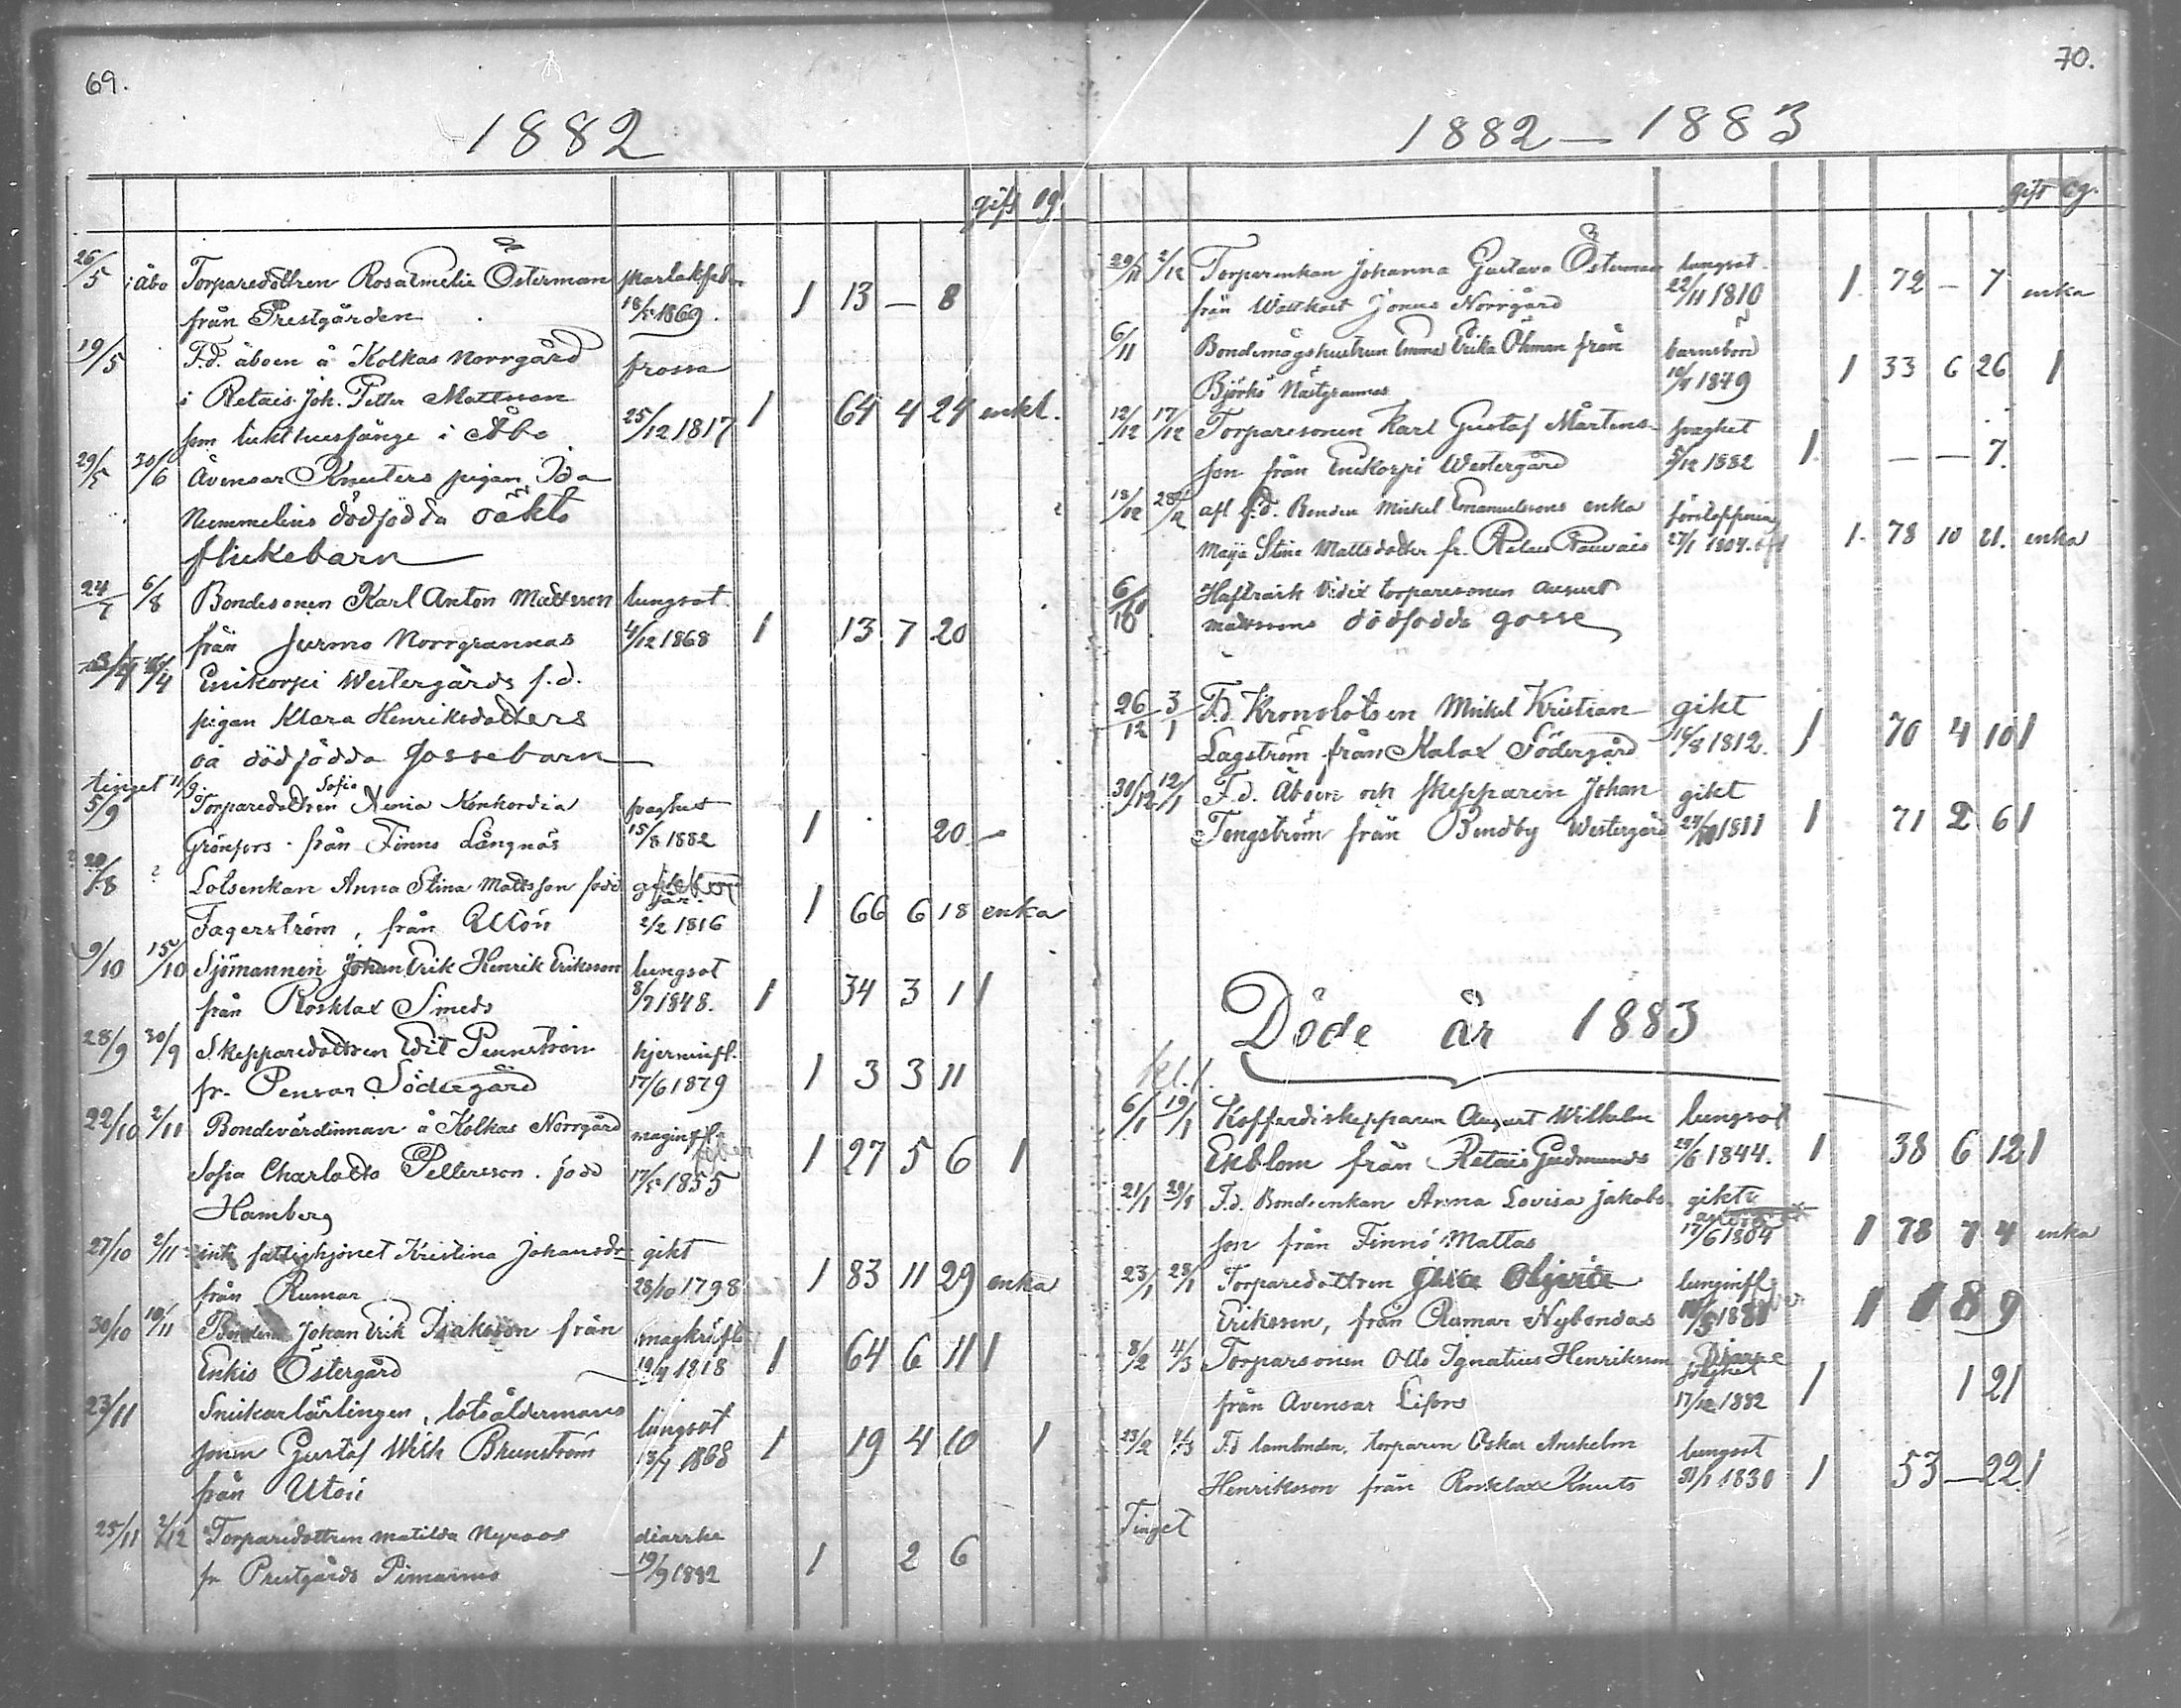 69.
1882
gift og.
26/5 i Åbo Torparedottren Rosa Emelie Österman skarlakfeber
från Prestgården 18/5 1869. 1 13 — 8
19/5 F.d. åboen å Kolkas Norrgård frossa
i Retais Joh. Petter Mattsson 25/12 1817 1 64 4 24 enkl.
som tukthusfånge i Åbo
29/5 30/6 Avensar Knuters pigan Ida
Nummelins dödfödda oäkta
flickebarn
24/7 6/8 Bondesonen Karl Anton Mattsson lungsot
från Jurmo Norrgrannas 4/12 1868 1 13 7 20
Enikorpi Westergårds f.d.
pigan Klara Henriksdotters
oä dödfödda gossebarn
tinget 11/9.
Sofia
5/9 Torparedottren Xenia Konkordia svaghet
Grönfors från Finno Långnäs 15/8 1882 1 20 —
20/8 ? Lotsenkan Anna Stina Mattsson född
Fagerström, från Utön 2/2 1816 1 66 6 18 enka
9/10 15/10 Sjömannen Johan Erik Henrik Eriksson lungsot
från Rosklax Smeds 8/7 1848. 1 34 3 1 1
28/9 30/9 Skepparedottren Edit Pennström hjerninfl.
fr. Pensar Södergård 17/6 1879 1 3 3 11
22/10 2/11 Bondevärdinnan å Kolkas Norrgård maginfl. feber
Sofia Charlotta Pettersson född 17/5 1855 1 27 5 6 1
Hamberg
27/10 2/11 fattighjonet Kristina Johansdr gikt
från Rumar 28/10 1798 1 83 11 29 enka
30/10 10/11 Bonden Johan Erik Isaksson från magkräfta
Enkis Östergård 19/4 1818 1 64 6 11 1
23/11 Snickarlärlingen, lotsåldermans lungsot
sonen Gustaf Wilh Brunström 13/7 1868 1 19 4 10 1
från Utön
25/11 2/12 Torparedottren Matilda Nyroos diarrhe
fr Prestgårds Pimainus 19/9 1882 1 2 6
70.
1882 — 1883
gift og.
29/11 2/12 Torparenkan Johanna Gustava Österman lungsot
från Wattkast Jonus Norrgård 22/11 1810 1 72 — 7 enka
6/11 Bondemågshustrun Emma Erika Öhman från barnsbörd
Björkö Nästgrannas 10/4 1849 1 33 6 26 1
12/12 17/12 Torparesonen Karl Gustaf Mårtens- svaghet
son från Enikorpi Westergård 5/12 1882 1 — — 7.
18/12 28/12 afl f.d. Bonden Mickel Emanuelssons enka förstoppning
Maija Stina Mattsdotter fr. 27/1 1804 1 78 10 21. enka
6/10 torparesonen August
Mattssons dödfödda gosse
26/12 3/1 F.d. Kronolotsen Mickel Kristian gikt
Lagström från Kalax Södergård 16/8 1812. 1 70 4 10 1
30/12 12/1 F.d. Åboen och skepparen Johan gikt
Tengström från Bendby Westergård 24/10 1811 1 71 2 6 1
Döde år 1883
kl. 1.
6/1 19/1 Kofferdiskepparen August Wilhelm lungsot
Ekblom från Retais Gudmunds 29/6 1844. 1 38 6 12 1
21/1 29/1 F.d. Bondeenkan Anna Lovisa Jakobs- gikt
son från Finnö Mattas 17/6 1804 1 78 7 4 enka
23/1 28/1 Torparedottren lunginfl.
Eriksson, från Rumar Nybondas 1881 1 1 8 9
8/2 4/3 Torparsonen Otto Ignatius Henriksson svaghet
från Avensar Lifors 17/12 1882 1 1 21
23/2 4/3 F.d. torparen Oskar Anshelm lungsot
Henriksson från Rosklax Knuts 31/1 1830 1 53 — 22 1
Tinget